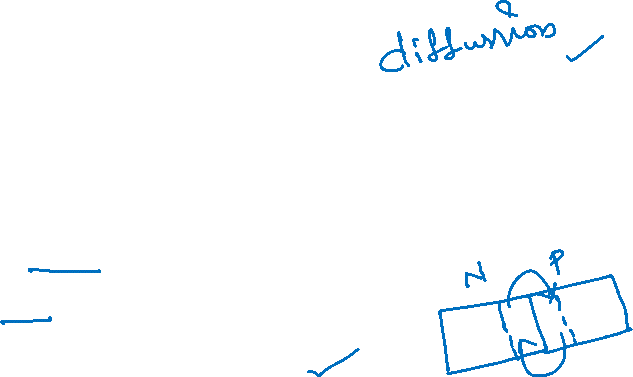 diffusion
N P